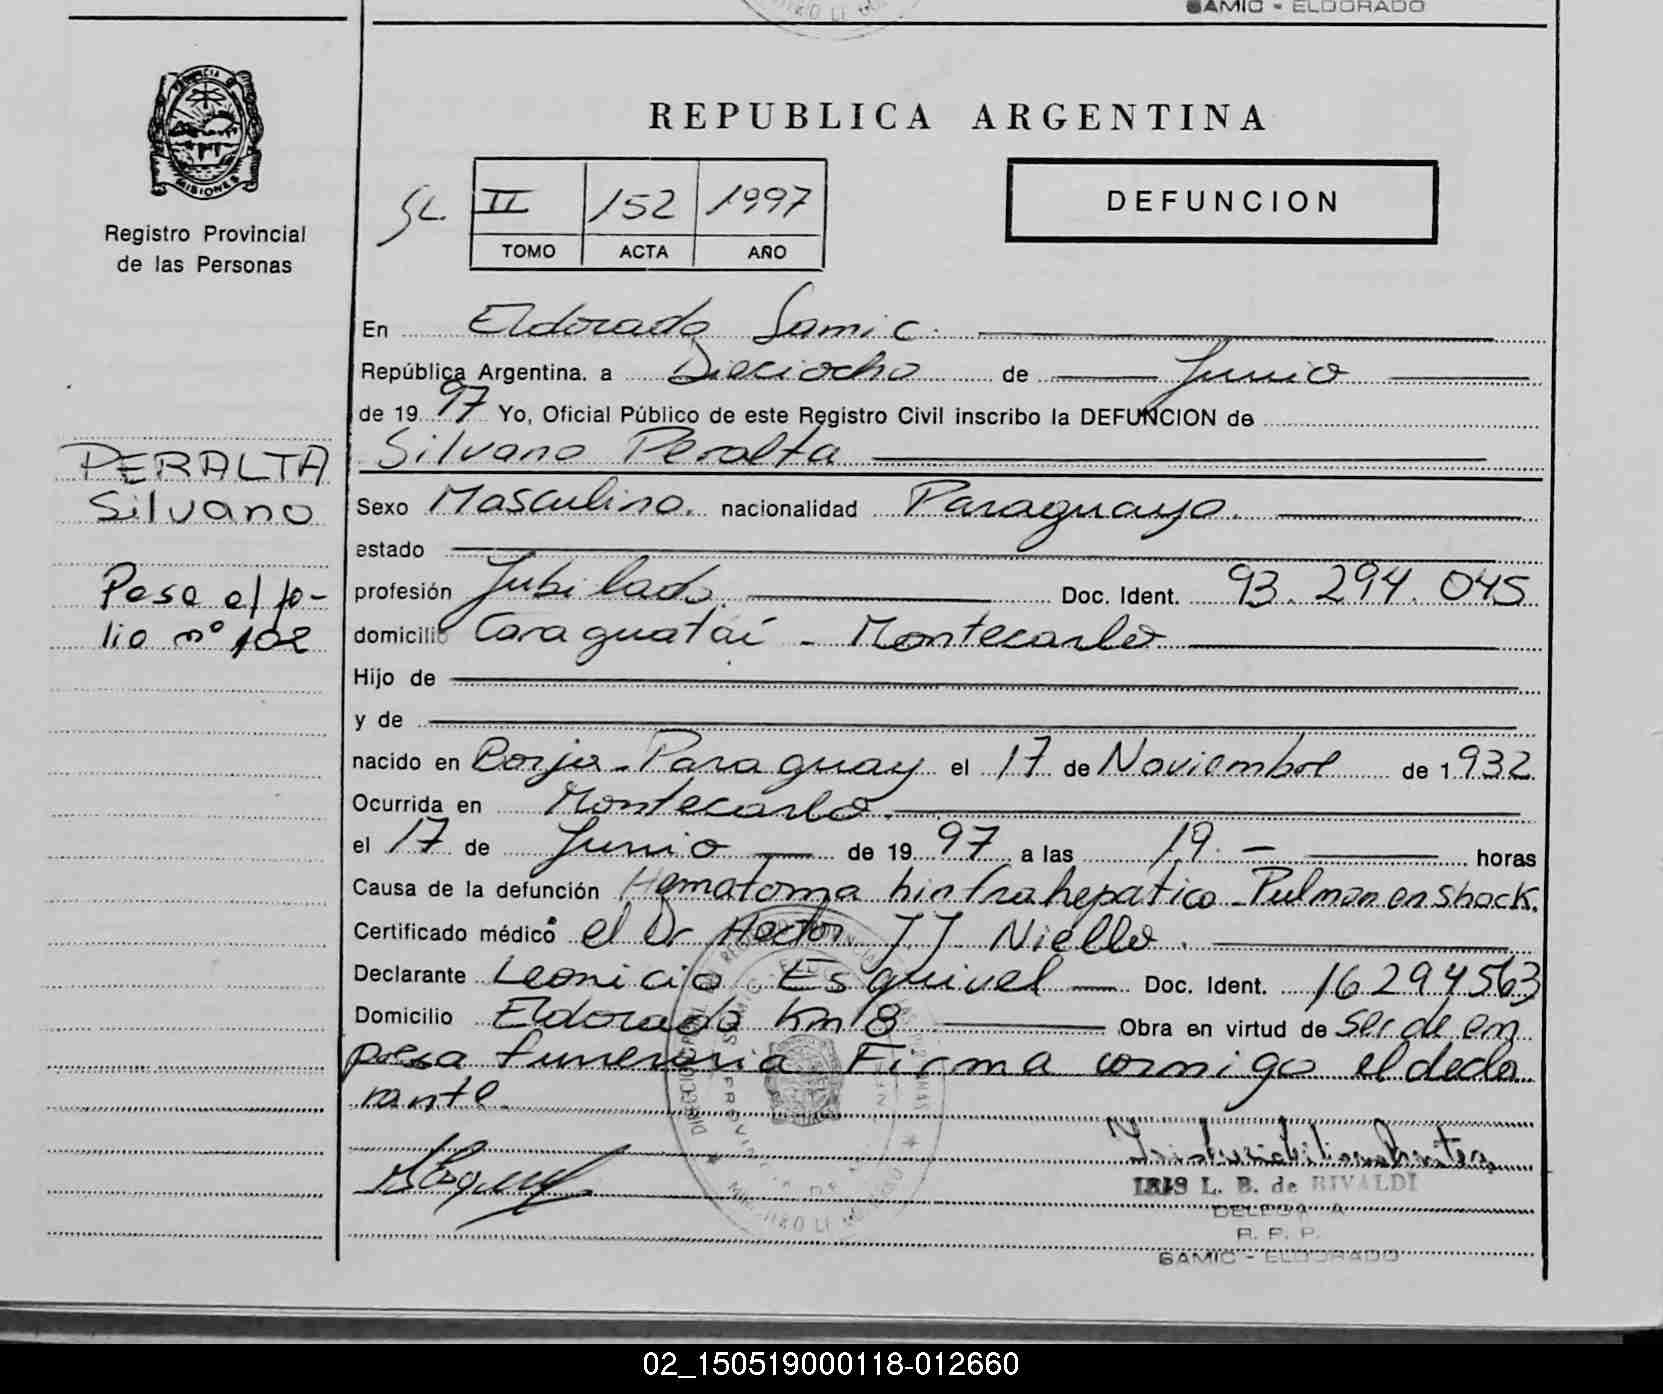 SAMIC - ELDORADO
PROVINCIA DE
MISIONES
Registro Provincial
de las Personas
REPUBLICA ARGENTINA
DEFUNCION
SL. II 152 1997
TOMO ACTA AÑO
En Eldorado Samic.
República Argentina. a Dieciocho de Junio
de 19 97 Yo, Oficial Público de este Registro Civil inscribo la DEFUNCION de
Silvano Peralta
PERALTA
Silvano
Pasa al fo-
lio nº 102
Sexo Masculino. nacionalidad Paraguaya.
estado
profesión Jubilado. Doc. Ident. 93.294.045
domicilio Caraguataí - Montecarlo
Hijo de
y de
nacido en Borja - Paraguay el 17 de Noviembre de 1932
Ocurrida en Montecarlo.
el 17 de Junio de 19 97 a las 19. - horas
Causa de la defunción Hematoma hintrahepatico - Pulmon en shock.
Certificado médico el Dr Hector JJ Niello.
Declarante Leonicio Esquivel Doc. Ident. 16294563
Domicilio Eldorado Km 8 Obra en virtud de ser de em
presa funeraria Firma conmigo el decla
rante.
IRIS L. B. de RIVALDI
DELEGADA
R. P. P.
SAMIC - ELDORADO
02_150519000118-012660